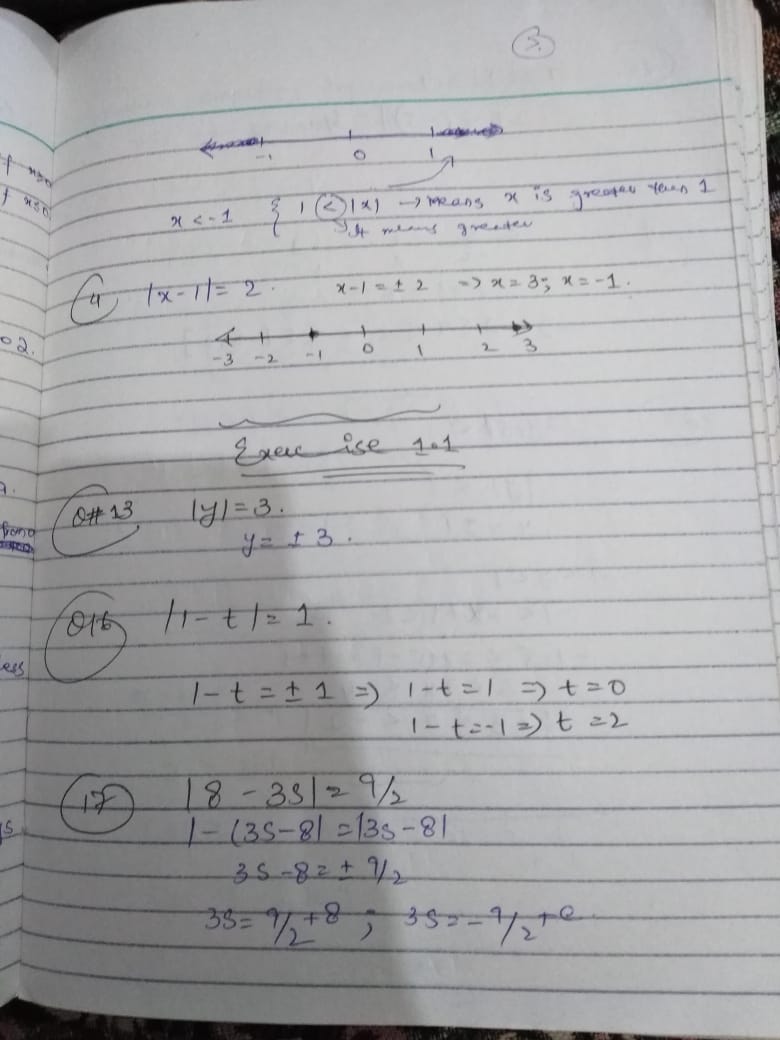 3.
-1 0 1
x < -1 { 1 < |x| → means x is greater than 1
It means greater
4 |x-1| = 2. x-1 = ± 2 => x = 3; x = -1.
-3 -2 -1 0 1 2 3
Exercise 1.1
Q# 13 |y| = 3.
y = ± 3.
|1 - t| = 1.
1 - t = ± 1 => 1-t = 1 => t = 0
1 - t = -1 => t = 2
17 |8 - 3S| = 9/2
|-(3S-8| = |3S-8|
3S-8 = ± 9/2
3S = 9/2 + 8 ; 3S = -9/2 +